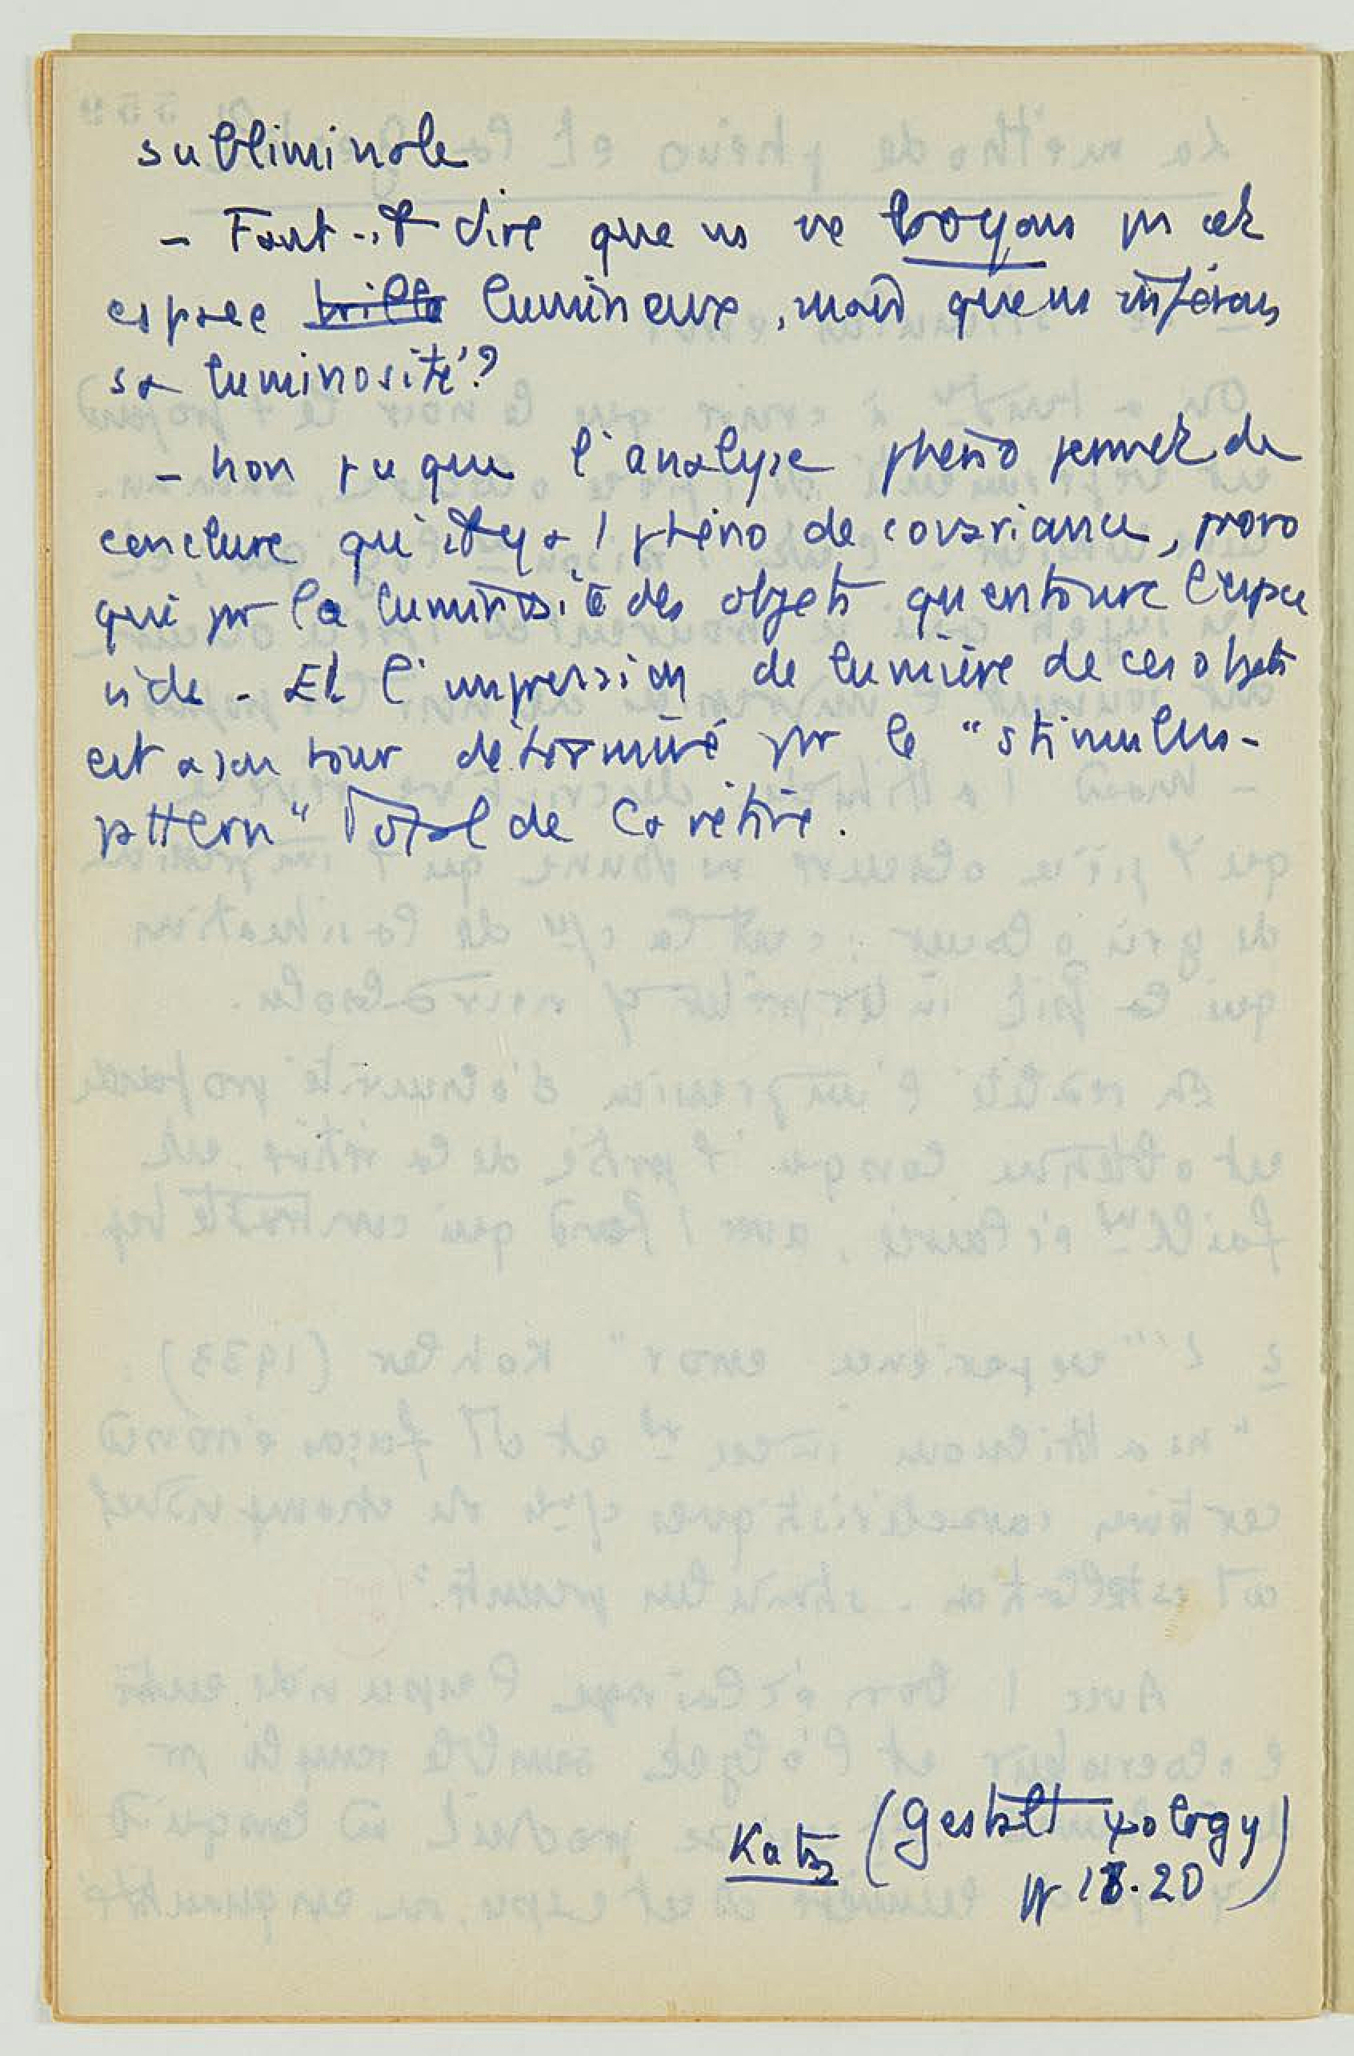 subliminale
- Faut-il dire que ns ne voyons ps cet
espace brille lumineux, mais que ns inférons
sa luminosité ?
- non pq que l'analyse phéno permet de
conclure qu'il y a 1 phéno de covariance, provo
qué pr la luminosité des objets qui entoure l'espace
vide - Et l'impression de lumière de ces objets
est a son tour déterminé pr le "stimulus-
pattern" Total de la rétine.
Katz (Gestalt ψology)
pp 18.20